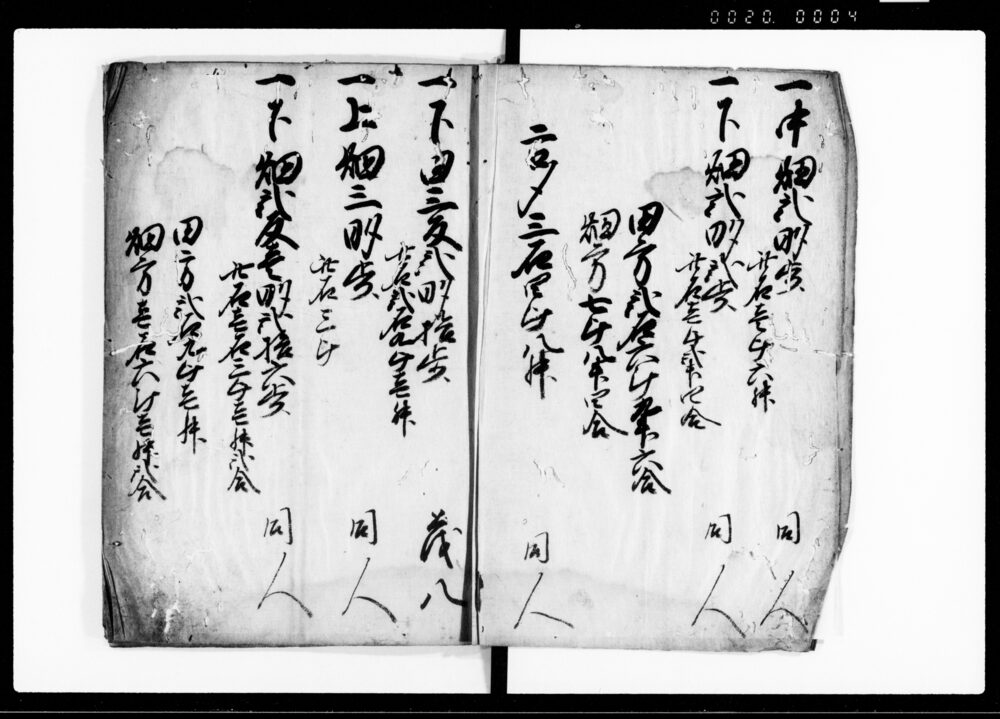 0020. 0004
一中畑弐畝歩 同人
此石壱斗六升
一下畑弐畝弐歩 同人
此石壱斗弐升四合
田方弐石六斗九升六合
畑方七斗八升四合
二口〆三石四斗八升 同人
一下田三反弐畝拾歩 茂八
此石弐石九斗壱升
一上畑三畝歩 同人
此石三斗
一下畑弐反壱畝弐拾六歩 同人
此石壱石三斗壱升弐合
田方弐石九斗壱升
畑方壱石六斗壱升弐合